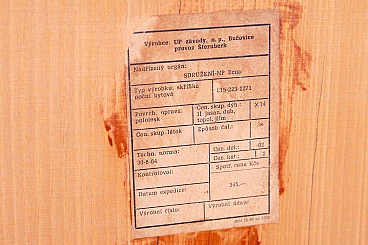 Výrobce: UP závody, n. p., Bučovice
provoz Šternberk
Nadřízený orgán:
SDRUŽENÍ-NP Brno
Typ výrobku: skříňka
noční bytová
115-223-1271
Povrch. úprava:
pololesk
Cen. skup. dýh.:
II jasan, dub,
topol, jilm
X 14
Cen. skup. látek
Způsob čal.:
Techn. norma:
30-8-64
Cen. dól.:
-02
Cen. kat.:
1
Kontroloval:
Spotř. cena Kčs
Datum expedice:
345,—
Výrobní číslo:
Výrobní údaje: